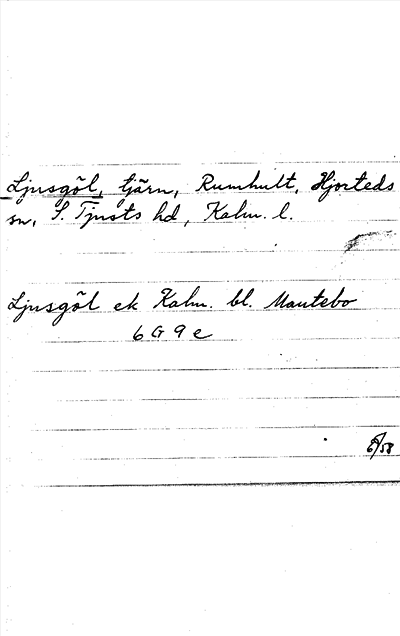 Ljusgöl, tjärn, Rumhult, Hjorteds
sn, S. Tjusts hd, Kalm. l.
Ljusgöl ek Kalm. bl. Mautebo
6 G 9 e